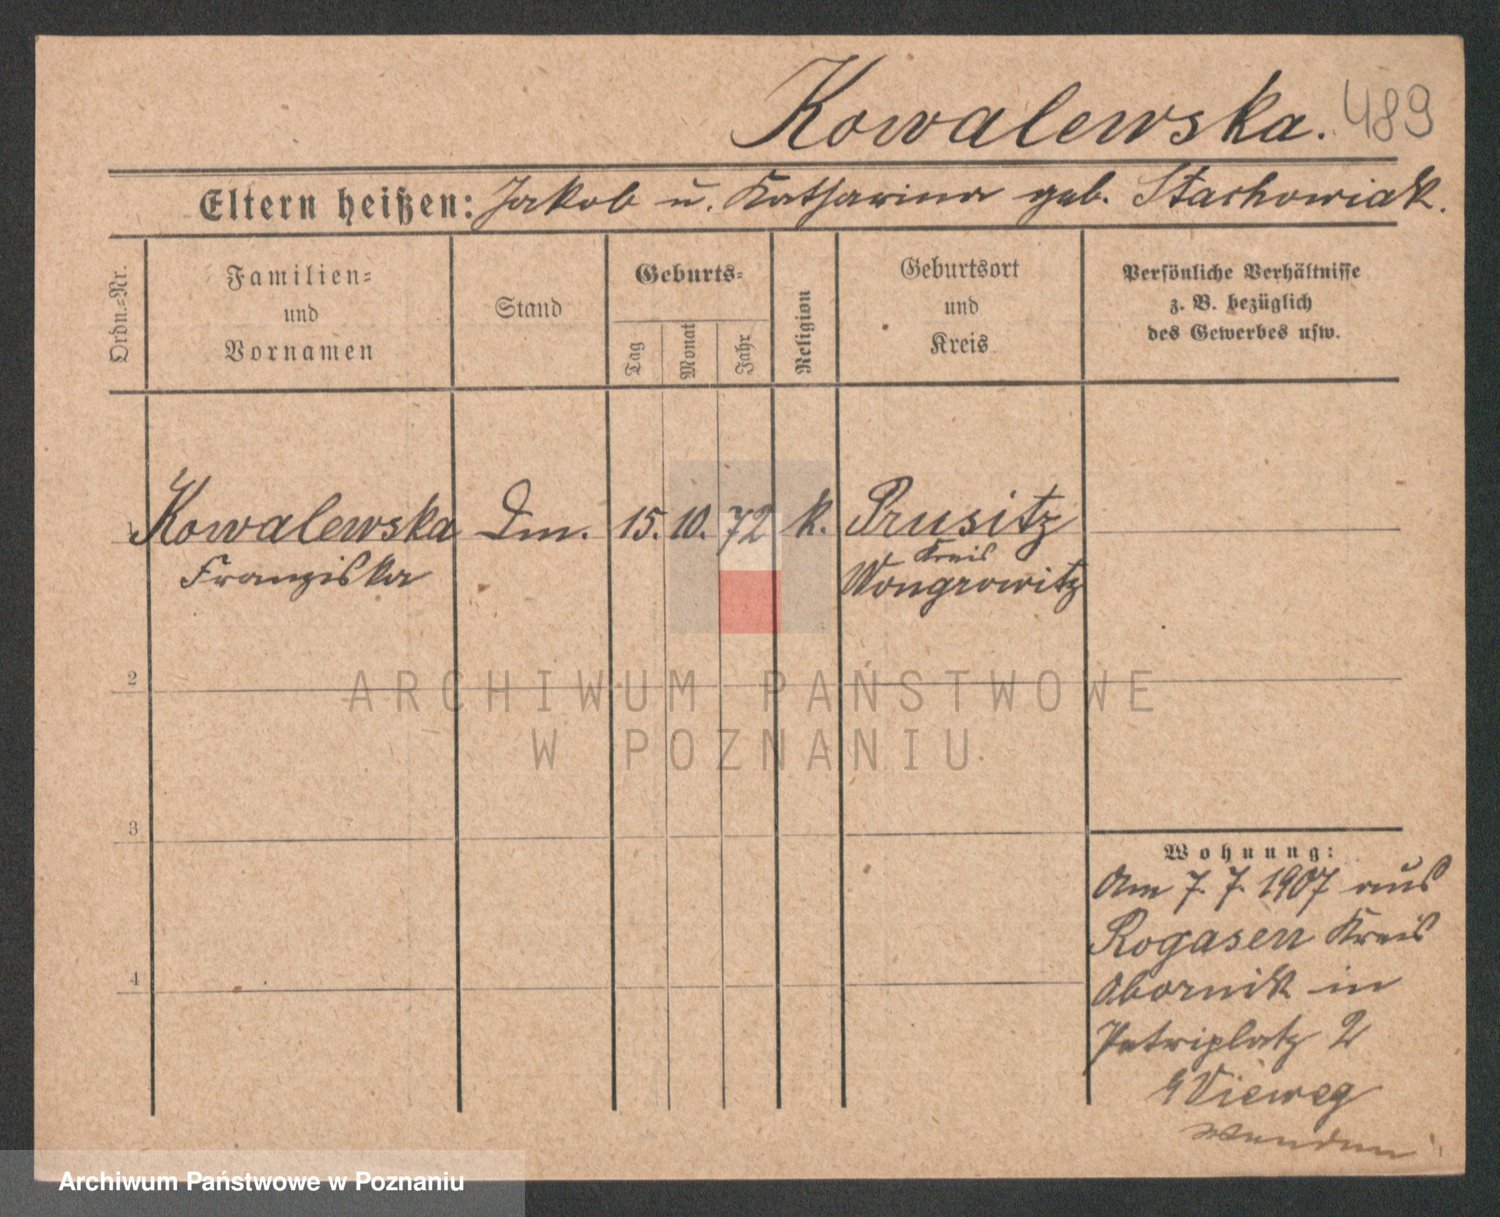 Kowalewska. 489
Eltern heißen: Jakob u. Katharina geb. Stachowiak.
Ordn.-Nr.
Familien-
und
Vornamen
Stand
Geburts-
Tag
Monat
Jahr
Religion
Geburtsort
und
Kreis
Persönliche Verhältnisse
z. B. bezüglich
des Gewerbes usw.
1 Kowalewska Dm. 15. 10. 72 k. Prusitz
Franziska
Kreis
Wongrowitz
2
3
4
Wohnung:
Am 7. 7. 1907 aus
Rogasen Kreis
Obornik in
Petriplatz 2
Vieweg
wenden
ARCHIWUM PAŃSTWOWE
W POZNANIU
Archiwum Państwowe w Poznaniu